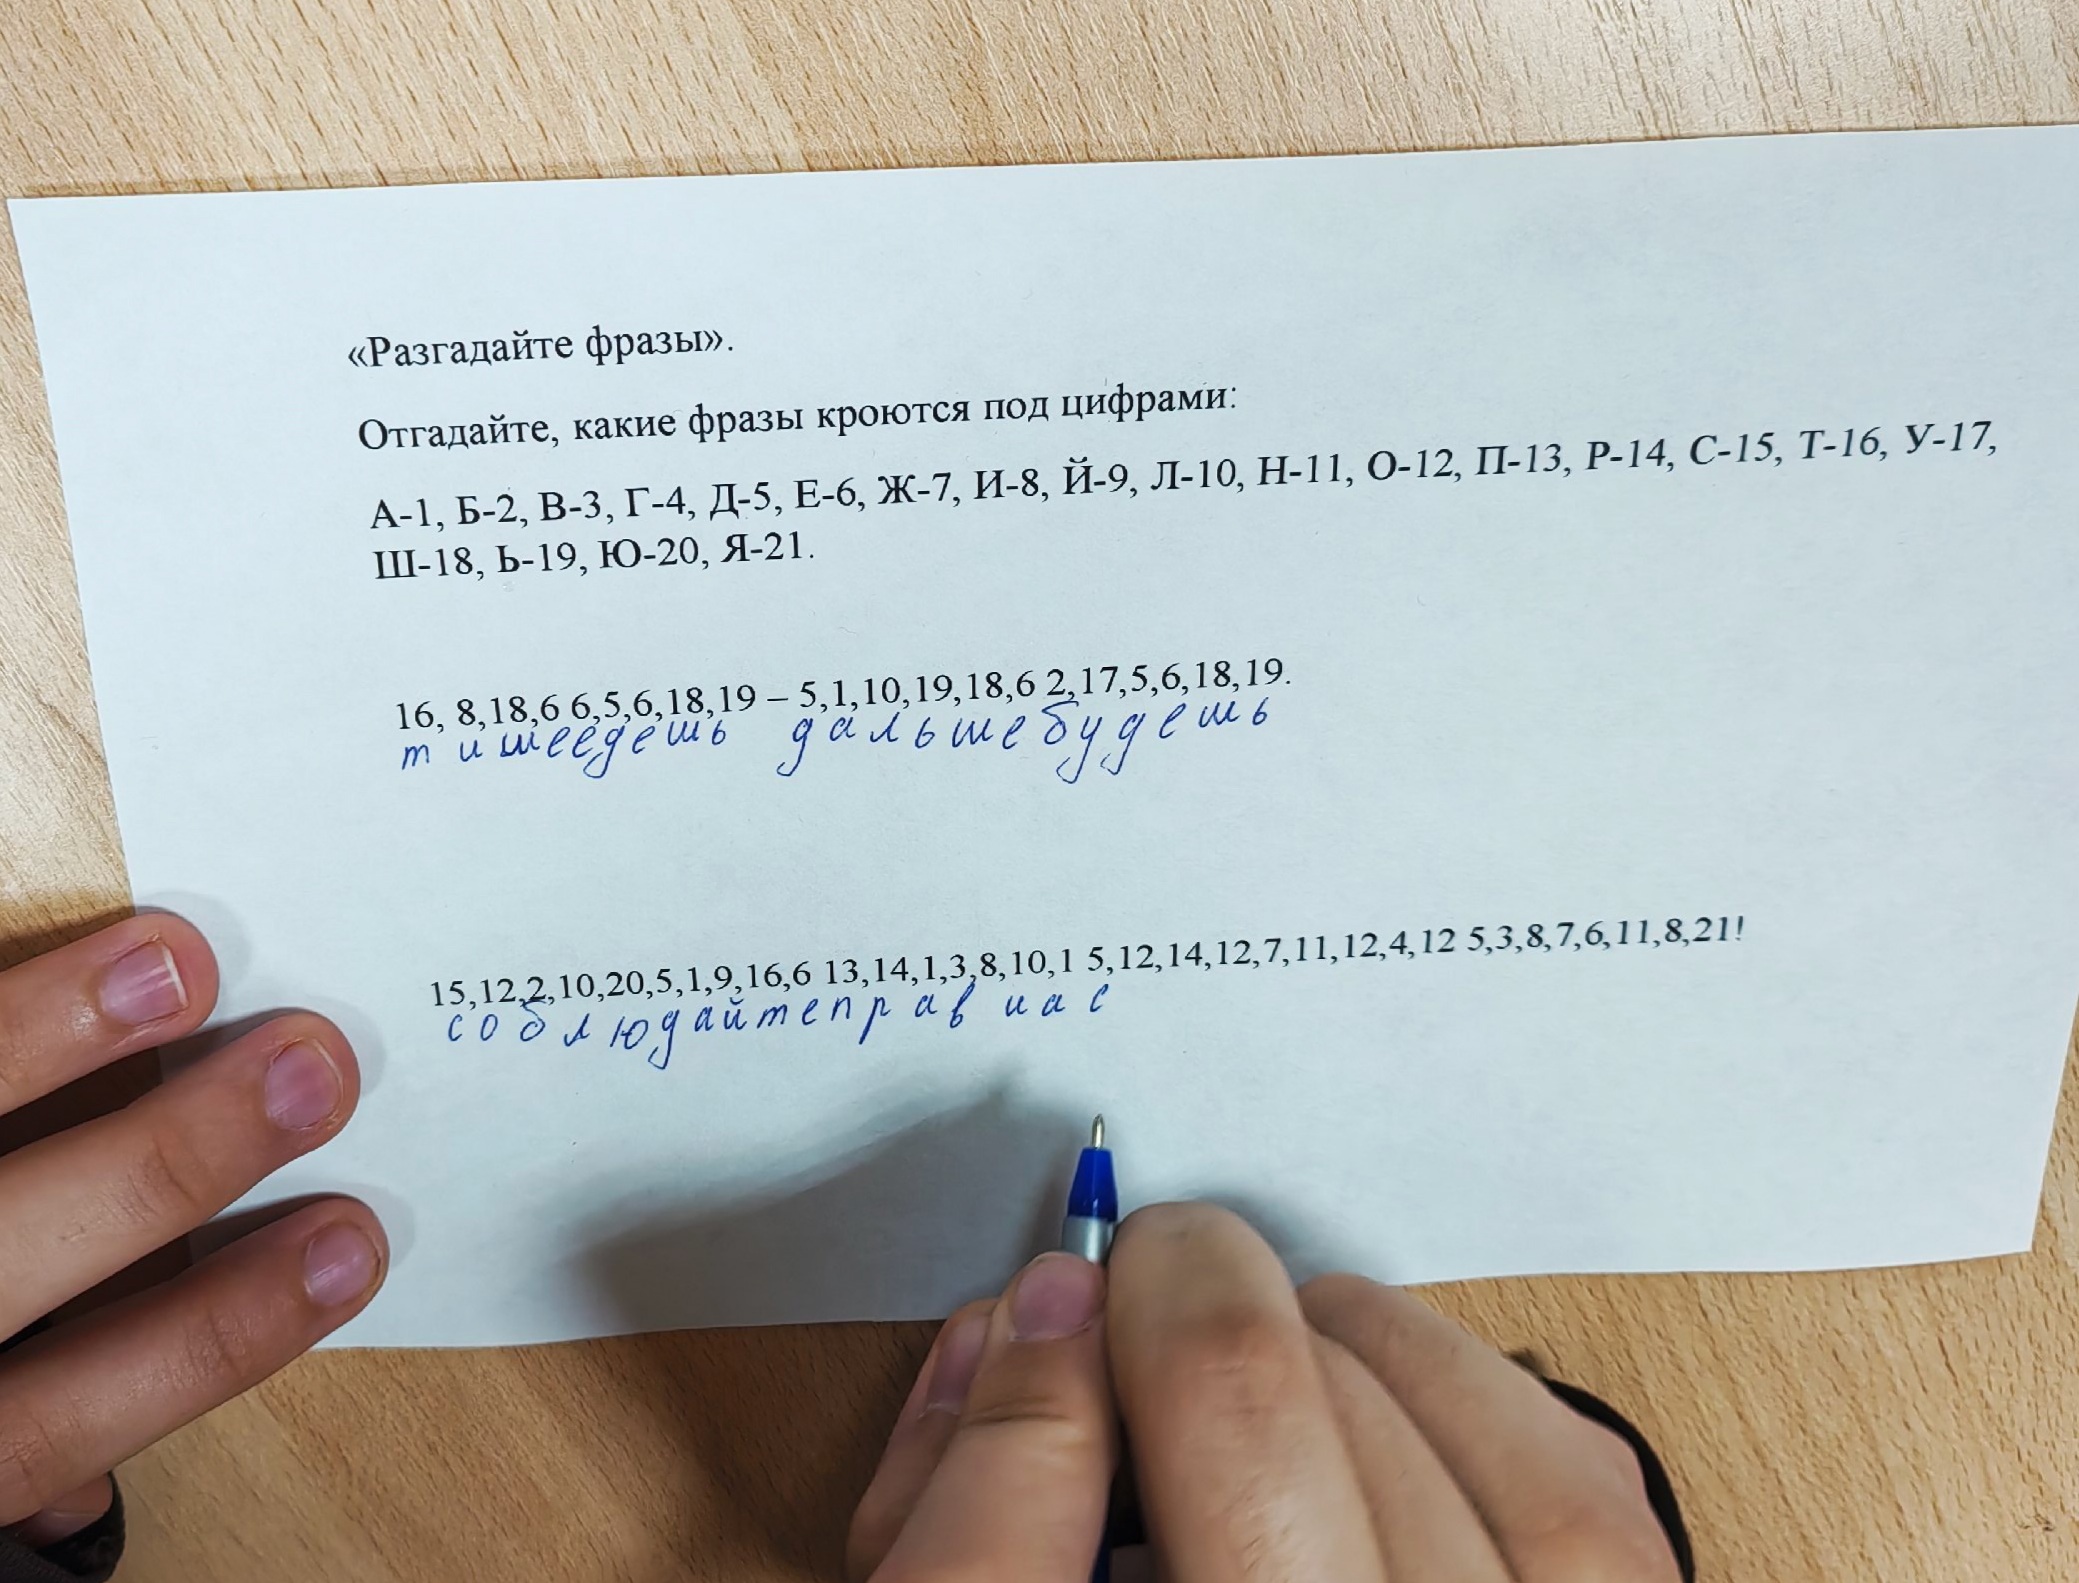 «Разгадайте фразы».
Отгадайте, какие фразы кроются под цифрами:
А-1, Б-2, В-3, Г-4, Д-5, Е-6, Ж-7, И-8, Й-9, Л-10, Н-11, О-12, П-13, Р-14, С-15, Т-16, У-17,
Ш-18, Ь-19, Ю-20, Я-21.
16, 8,18,6 6,5,6,18,19 – 5,1,10,19,18,6 2,17,5,6,18,19.
тишеедешь дальшебудешь
15,12,2,10,20,5,1,9,16,6 13,14,1,3,8,10,1 5,12,14,12,7,11,12,4,12 5,3,8,7,6,11,8,21!
соблюдайтеправ иас